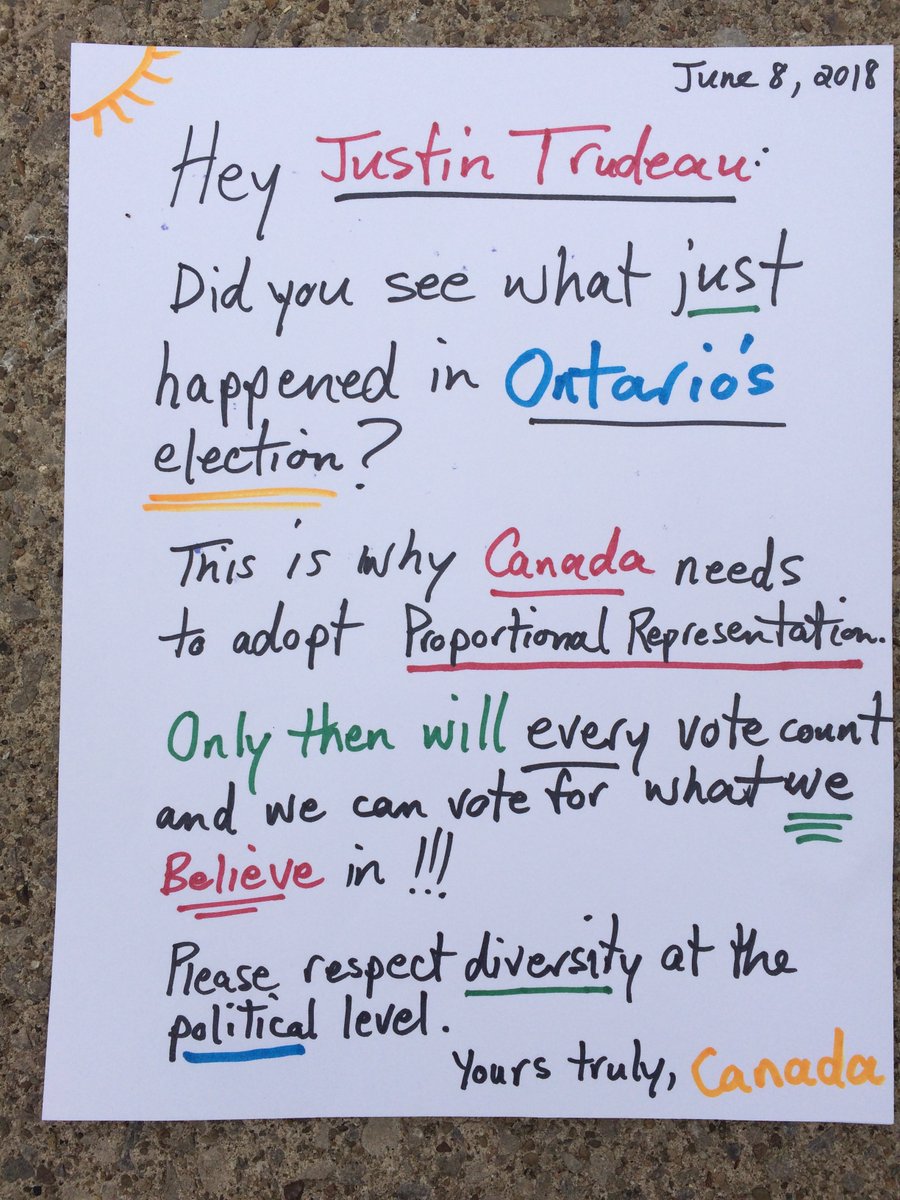 June 8, 2018
Hey Justin Trudeau:
Did you see what just
happened in Ontario's
election?
This is why Canada needs
to adopt Proportional Representation.
Only then will every vote count
and we can vote for what we
Believe in !!!
Please respect diversity at the
political level.
Yours truly, Canada